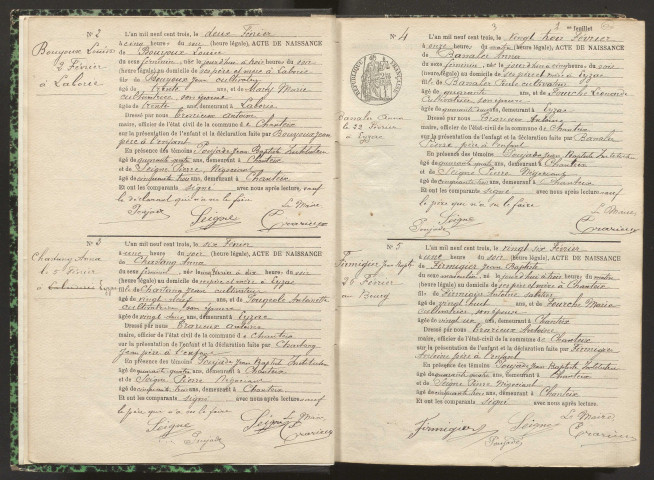 N° 2
Bouyoux Louise
2 Février
à Laborie
L'an mil neuf cent trois, le deux Février
à cinq heures du soir (heure légale), ACTE DE NAISSANCE
de Bouyoux Louise
du sexe féminin, née aujourd'hui à trois heures du
(heure légale) au domicile de ses père et mère à Laborie
fille de Bouyoux Jean cultivateur
âgé de trente ans, et de Marie
cultivatrice son épouse
âgée de trente ans, demeurant à Laborie
Dressé par nous Trarieux Antoine
maire, officier de l'état civil de la commune de Chanteix
sur la présentation de l'enfant et la déclaration faite par Bouyoux Jean
père à l'enfant
En présence des témoins Poujade Jean Baptiste Instituteur
âgé de quarante quatre ans, demeurant à Chanteix
et de Seigne Pierre Négociant
âgé de cinquante trois ans, demeurant à Chanteix
Et ont les comparants signé avec nous après lecture, sauf
le déclarant qui n'a su le faire
Le Maire
Poujade Seigne Trarieux
N° 3
Chastang Anna
Février
L'an mil neuf cent trois, le six Février
à heures du soir (heure légale), ACTE DE NAISSANCE
de Chastang Anna
du sexe féminin, née à dix heures du soir
(heure légale) au domicile de ses père et mère à
fille de Chastang Jean cultivateur
âgé de vingt neuf ans, et de Antoinette
cultivatrice son épouse
âgée de vingt ans, demeurant à
Dressé par nous Trarieux Antoine
maire, officier de l'état civil de la commune de Chanteix
sur la présentation de l'enfant et la déclaration faite par Chastang
Jean père à l'enfant
En présence des témoins Poujade Jean Baptiste Instituteur
âgé de quarante quatre ans, demeurant à Chanteix
et de Seigne Pierre Négociant
âgé de cinquante trois ans, demeurant à Chanteix
Et ont les comparants signé avec nous après lecture, sauf
le père qui n'a su le faire
Le Maire
Seigne Poujade Trarieux
feuillet
N° 4
RÉPUBLIQUE FRANÇAISE
Anna
le 22 Février
L'an mil neuf cent trois, le vingt Février
à onze heures du (heure légale), ACTE DE NAISSANCE
de Anna
du sexe féminin, née
(heure légale) au domicile de ses père et mère à
fille de cultivateur
âgé de quarante ans, et de Léonarde
cultivatrice son épouse
âgée de quarante ans, demeurant à
Dressé par nous Trarieux Antoine
maire, officier de l'état civil de la commune de Chanteix
sur la présentation de l'enfant et la déclaration faite par
Pierre, père à l'enfant
En présence des témoins Poujade Jean Baptiste Instituteur
âgé de quarante quatre ans, demeurant à Chanteix
et de Seigne Pierre Négociant
âgé de cinquante trois ans, demeurant à Chanteix
Et ont les comparants signé avec nous après lecture sauf
le père qui n'a su le faire.
Le Maire,
Poujade Seigne Trarieux
N° 5
Firmigier Jean Baptiste
26 Février
au Bourg
L'an mil neuf cent trois, le vingt six Février
à une heure du soir (heure légale), ACTE DE NAISSANCE
de Firmigier Jean Baptiste
du sexe masculin, né heures du matin
(heure légale) au domicile de ses père et mère à Chanteix
fils de Firmigier Antoine
âgé de vingt huit ans, et de Marie
cultivatrice, son épouse
âgée de vingt ans, demeurant à Chanteix
Dressé par nous Trarieux Antoine
maire, officier de l'état civil de la commune de Chanteix
sur la présentation de l'enfant et la déclaration faite par Firmigier
Antoine père à l'enfant
En présence des témoins Poujade Jean Baptiste Instituteur
âgé de quarante quatre ans, demeurant à Chanteix
et de Seigne Pierre Négociant
âgé de cinquante trois ans, demeurant à Chanteix
Et ont les comparants signé avec nous après lecture.
Le Maire
Firmigier Poujade Seigne Trarieux